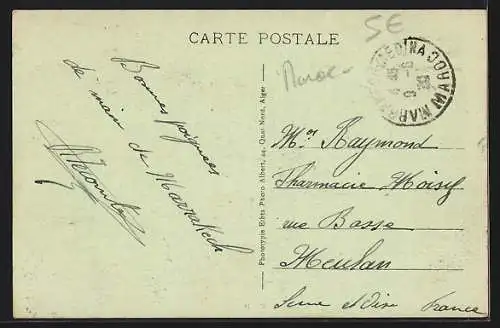 CARTE POSTALE
5E
Maroc
MARRAKECH MEDINA
MAROC
Bonnes poignées
de main de Marrakech
Phototypie Etabts Photo Albert, Quai Nord, Alger
Mer Raymond
Pharmacie Moisy
rue Basse
Meulan
Seine et Oise France